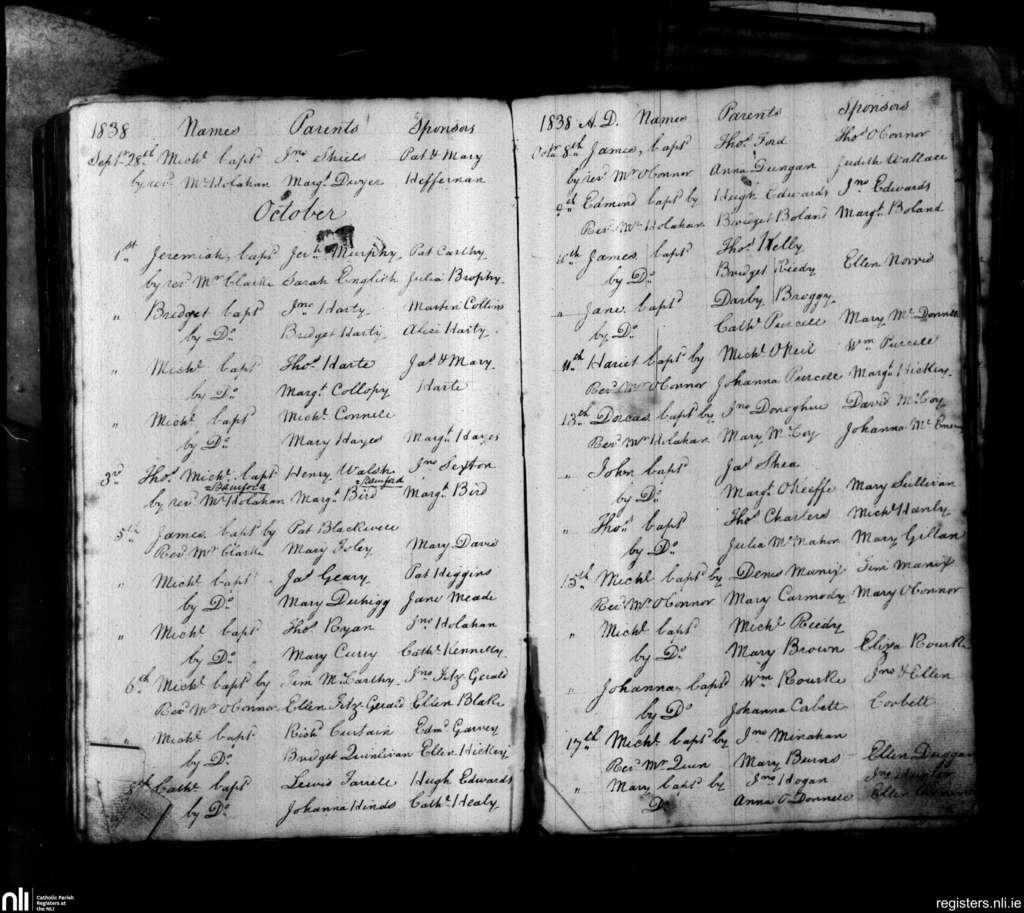 1838 Names Parents Sponsors
Septr 28th Michl bapd Jno Shiels Pat & Mary
by revd Mr Holahan Margt Dwyer Heffernan
October
1st Jeremiah, bapd Jerh Murphy Pat Carthy
by revd Mr Clarke Sarah English Julia Brophy
" Bridget bapd Jno Harty Martin Collins
by Do Bridget Harty Alice Harty
" Michl bapd Thos Harte Jas & Mary
by Do Margt Collopy Harte
" Michl bapd Michl Connell
by Do Mary Hayes Margt Hayes
3rd Thos Michl bapd Henry Walsh Jno Sexton
Bamford Bamford
by revd Mr Holahan Margt Bird Margt Bird
5th James bapd by Pat Blackwell
Revd Mr Clarke Mary Foley Mary Davis
" Michl bapd Jas Geary Pat Higgins
by Do Mary Duhigg Jane Meade
" Michl bapd Thos Ryan Jno Holahan
by Do Mary Curry Cathe Kennelly
6th Michl bapd by Jim McCarthy Jno Fitz Gerald
Revd Mr OConnor Ellen Fitz Gerald Ellen Blake
" Michl bapd Richd Curtain Edmd Garvey
by Do Bridget Quinlivan Ellen Hickey
8th Cathe bapd Lewis Farrell Hugh Edwards
by Do Johanna Hinds Cathe Healy
1838 A.D. Names Parents Sponsors
Octr 8th James, bapd Thos Ford Thos OConnor
by revd Mr OConnor Anna Dungan Judith Wallace
9th Edmond bapd by Hugh Edwards Jno Edwards
Revd Mr Holahan Bridget Boland Margt Boland
James bapd Thos Kelly
by Do Bridget Reedy Ellen Norris
" Jane bapd Darby Broggy
by Do Cathe Purcell Mary McDonnell
11th Hariet bapd by Michl ONeil Wm Purcell
Revd Mr OConnor Johanna Purcell Margt Hickey
13th Dorcas bapd by Jno Donoghue David McCoy
Revd Mr Holahan Mary McCoy Johanna Mc
" John bapd Jas Shea
by Do Margt OKeeffe Mary Sullivan
" Thos bapd Thos Charters Michl Hanly
by Do Julia McMahon Mary Gillan
15th Michl bapd by Denis Manix Jim Manix
Revd Mr OConnor Mary Carmody Mary OConnor
" Michl bapd Michl Reedy
by Do Mary Brown Eliza Rourke
" Johanna, bapd Wm Rourke Jno & Ellen
by Do Johanna Cabett Corbett
17th Michl bapd by Jno Minahan
Revd Mr Quin Mary Burns Ellen Duggan
" Mary bapd by Jno Hogan Jno
Do Anna O Donnell Ellen
nli Catholic Parish
Registers at
the NLI
registers.nli.ie